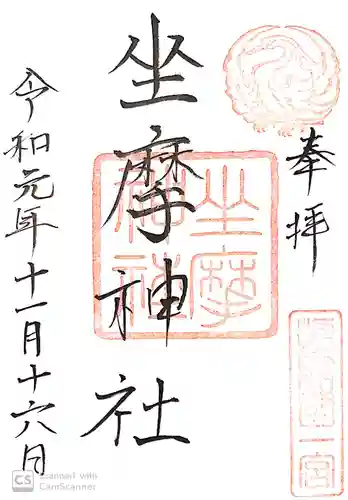 奉拝
坐摩神社
令和元年十一月十六日
坐摩
一宮
CS
Scanned with
CamScanner